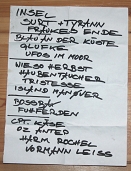 INSEL
SURT + TYRANN
FRÄUKES ENDE
BLAU AN DER KÜSTE
GLUEKE
UFOS IM MOOR
WIESO HERBST
HAUBENTAUCHER
TRISTESSE
ISLAND MANÖVER
BOSSBAU
FUHFERDEN
CPT. KÄSE
OZ ANTEP
HARM ROCHEL
VORMANN LEISS